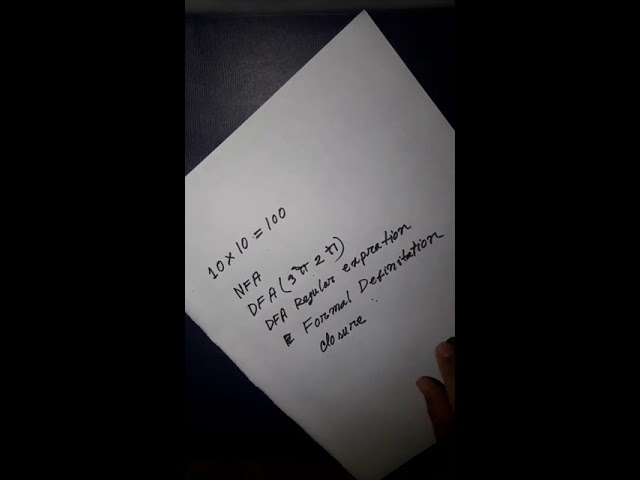 10 × 10 = 100
NFA
DFA (3টা 2টা)
DFA Regular expration
E Formal Definitation
closure :